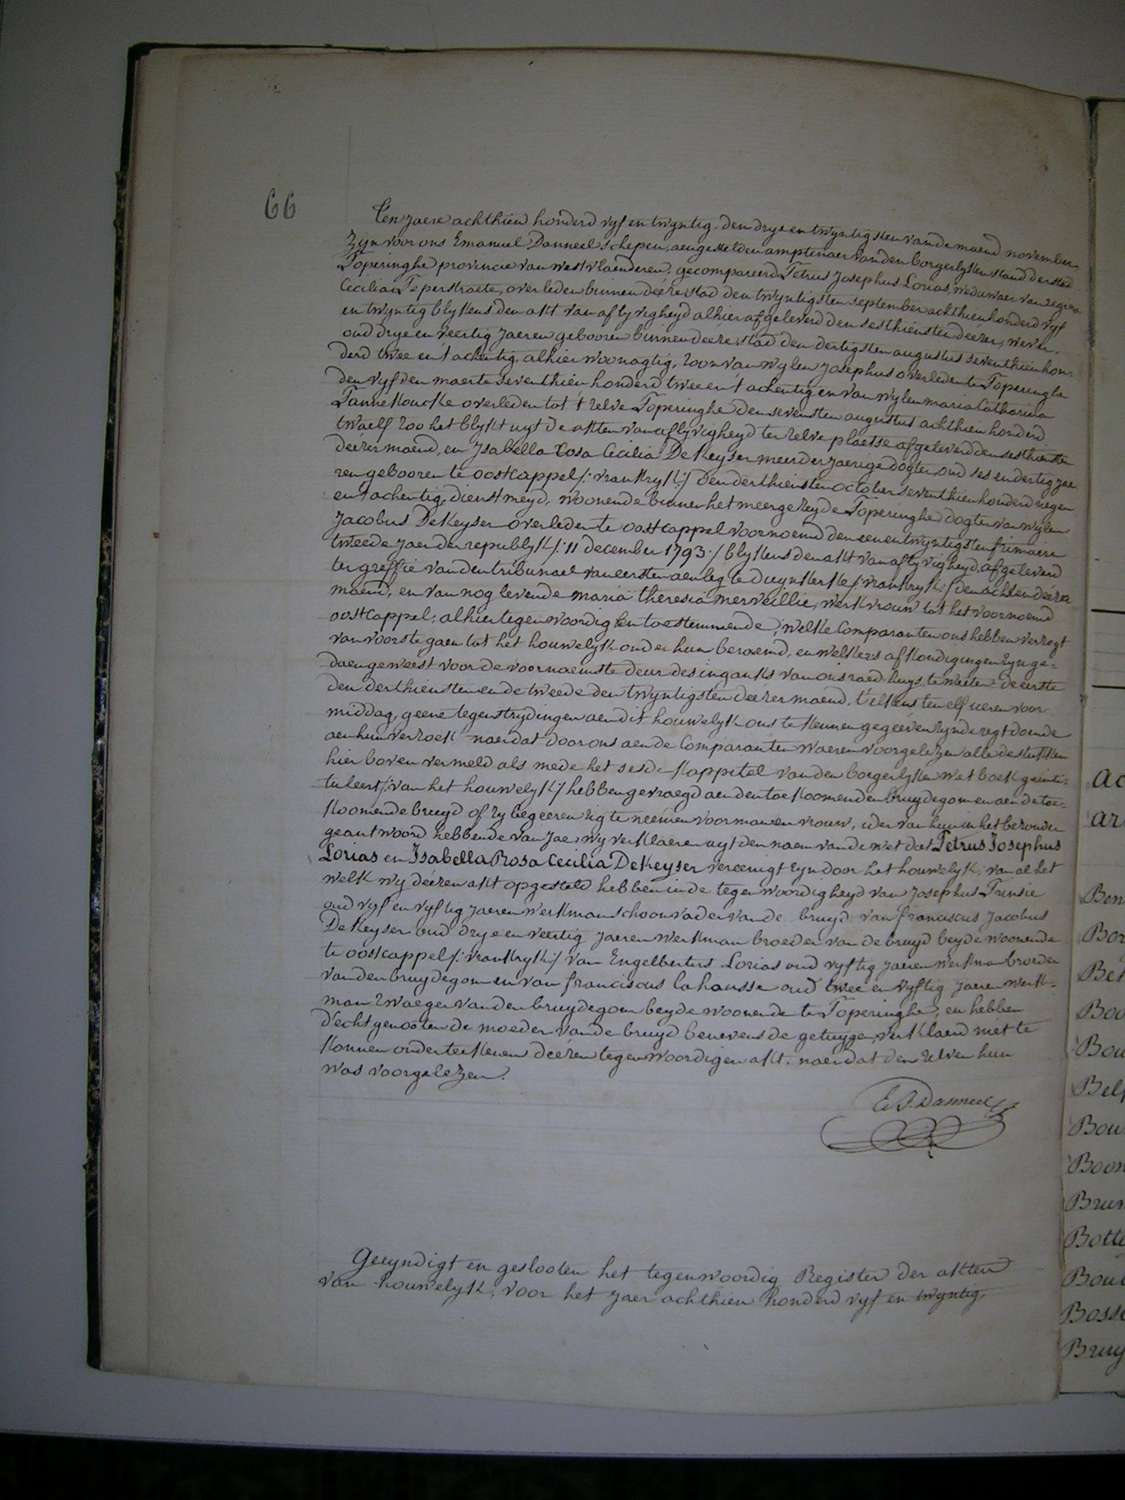 66
Ten jaere achthien honderd vyf en twyntig, den drye en twyntigsten van de maend november
zyn voor ons Emanuel Danneel Schepen, aengestelden amptenaer van den borgerlyken stand der stad
Poperinghe provincie van westvlaenderen, gecompareerd Petrus Josephus Lorias, weduwaer van regina
Cecilia Peperstraete, overleden binnen deeze stad den twyntigsten september achthien honderd vyf
en twyntig blykens den akt van aflyvigheyd alhier afgeleverd den sesthiensten deezer, wever,
oud drye en veertig jaeren gebooren binnen deeze stad den dertigsten augustus seventhien hon-
derd twee en t achentig, alhier woonagtig, zoon van wylen Josephus overleden te Poperinghe
den vyfden maerte seventhien honderd twee en t achentig en van wylen maria Catharina
Pannekoucke overleden tot t zelve Poperinghe den sevensten augustus achthien honderd
twaelf zoo het blykt uyt de akten van aflyvigheyd ter zelve plaetse afgeleverd den sesthiensten
deezer maend, en Isabella Rosa Cecilia De Keyser meerderjaerige dogter oud ses en dertig jae
ren gebooren te oostcappel /:vrankryk:/ den derthiensten october seventhien honderd negen
en t achentig, dienstmeyd, woonende binnen het meergezeyde Poperinghe dogter van wylen
Jacobus De Keyser overleden te oostcappel voornoemd den een en twyntigsten frimaire
tweede jaer der republyk /:11 december 1793:/ blykens den akt van aflyvigheyd, afgeleverd
ter greffie van den tribunael van eersten aenleg te duynkerke /:vrankryk:/ den achsten deezer
maend, en van nog levende maria theresia merveillie, werkvrouw tot het voornoemd
oostcappel, alhier tegenwoordig en toestemmende, welke Comparanten ons hebben verzogt
van voorts te gaen tot het houwelyk onder hun beraemd, en welkers afkondigingen zyn ge-
daen geweest voor de voornaemste deur des ingankts van ons raed huys te weten de eerste
den derthiensten en de tweede den twyntigsten deezer maend, t'elkens ten elf ueren voor
middag, geene tegenstrydingen aen dit houwelyk ons te kennen gegeeven zynde regt doende
aen hun verzoek naerdat door ons aen de Comparanten waeren voorgelezen alle de stukken
hier boven vermeld als mede het sesde Kappitel van den borgerlyken wetboek geinti-
tuleert /:van het houwelyk:/ hebben gevraegd aen den toekoomenden bruydegom en aen de toe-
koomende bruyd of zy begeeren zig te neemen voor man en vrouw, ider van hun in het bezonder
geantwoord hebbende van Jae, wy verklaeren uyt den naem van de wet dat Petrus Josephus
Lorias en Isabella Rosa Cecilia De Keyser vereenigt zyn door het houwelyk, van al het
welk wy deezen akt opgesteld hebben in de tegenwoordigheyd van Josephus Prinsie
oud vyf en vyftig jaeren werkman schoonvader van de bruyd van franciscus Jacobus
De Keyser oud drye en veertig jaeren werkman broeder van de bruyd beyde woonende
te oostcappel /:vrankryk:/ van Engelbertus Lorias oud vyftig jaeren werkman broeder
van den bruydegom en van franciscus lahousse oud twee en vyftig jaeren werk-
man zwaeger van den bruydegom beyde woonende te Poperinghe, en hebben
d'echtgenooten de moeder van de bruyd benevens de getuygen verklaerd niet te
konnen onderteekenen deezen tegenwoordigen akt, naerdat den zelven hun
was voorgelezen.
E. J. Danneel
Geeyndigt en geslooten het tegenwoordig Register der akten
van houwelyk, voor het jaer achthien honderd vyf en twyntig.